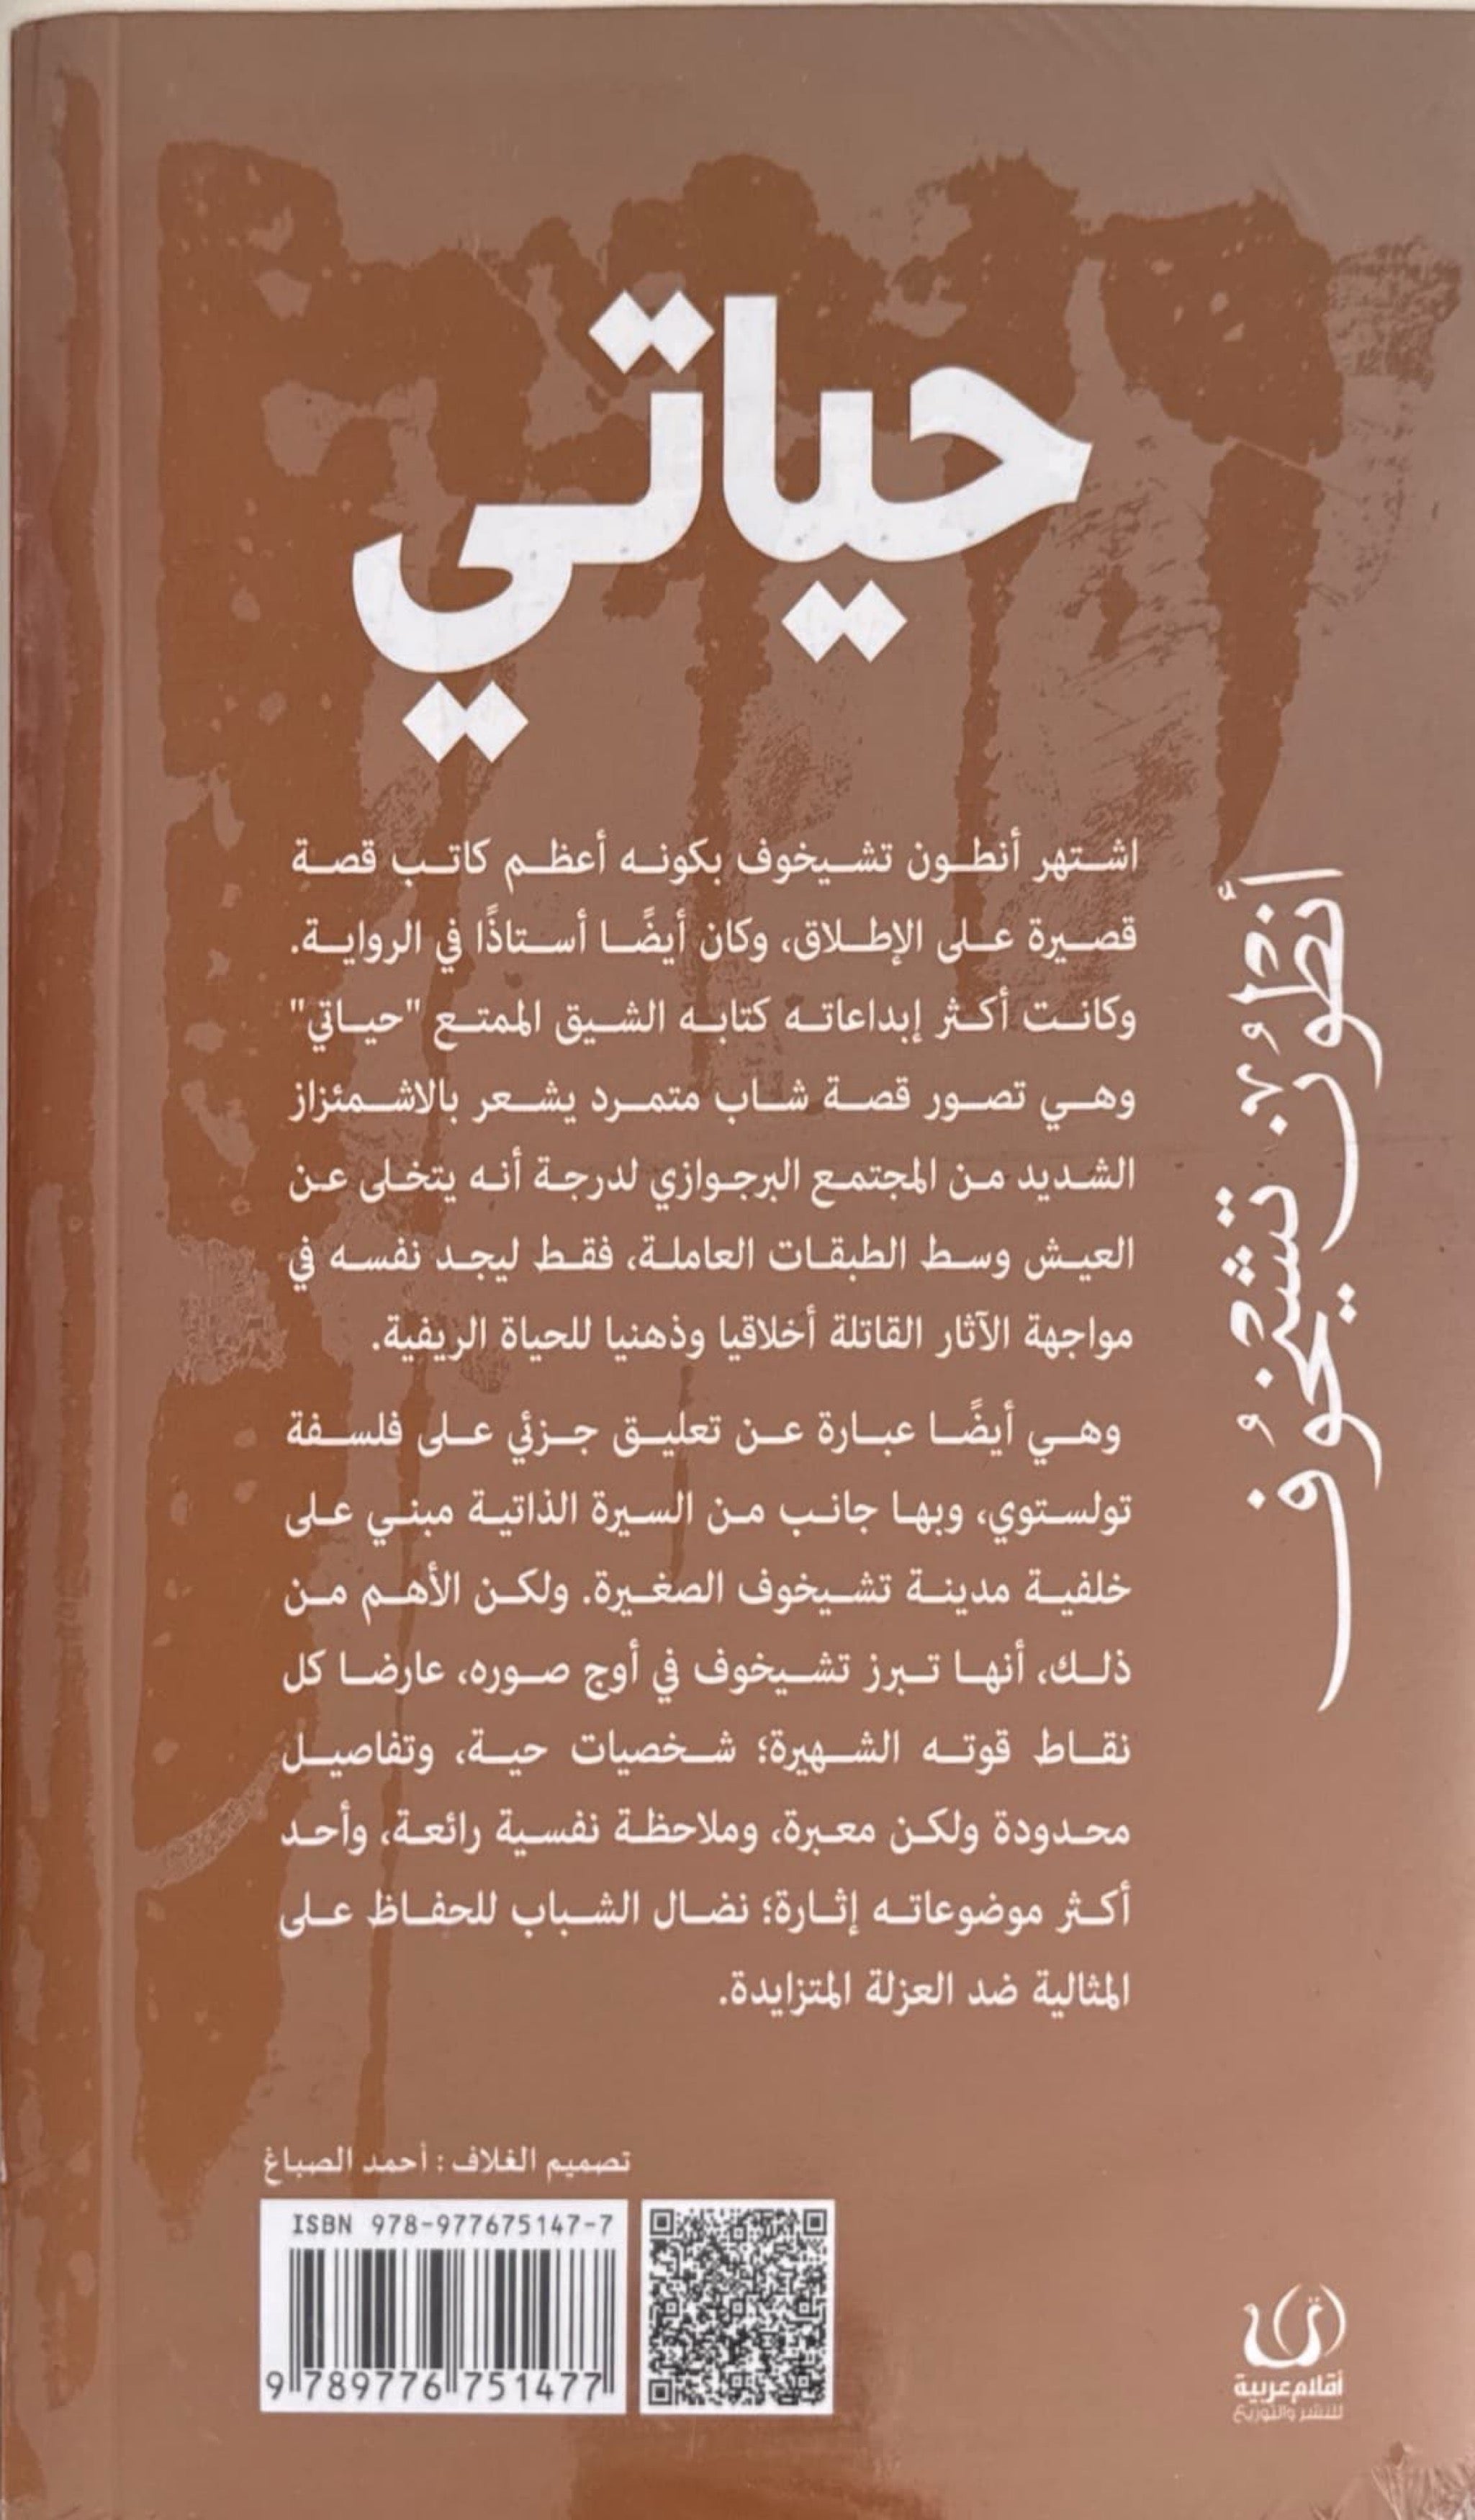 حياتي
اشتهر أنطون تشيخوف بكونه أعظم كاتب قصة
قصيرة على الإطلاق، وكان أيضًا أستاذًا في الرواية.
وكانت أكثر إبداعاته كتابه الشيق الممتع "حياتي"
وهي تصور قصة شاب متمرد يشعر بالاشمئزاز
الشديد من المجتمع البرجوازي لدرجة أنه يتخلى عن
العيش وسط الطبقات العاملة، فقط ليجد نفسه في
مواجهة الآثار القاتلة أخلاقيا وذهنيا للحياة الريفية.
وهي أيضًا عبارة عن تعليق جزئي على فلسفة
تولستوي، وبها جانب من السيرة الذاتية مبني على
خلفية مدينة تشيخوف الصغيرة. ولكن الأهم من
ذلك، أنها تبرز تشيخوف في أوج صوره، عارضا كل
نقاط قوته الشهيرة؛ شخصيات حية، وتفاصيل
محدودة ولكن معبرة، وملاحظة نفسية رائعة، وأحد
أكثر موضوعاته إثارة؛ نضال الشباب للحفاظ على
المثالية ضد العزلة المتزايدة.
أنطون تشيخوف
تصميم الغلاف : أحمد الصباغ
ISBN 978-977675147-7
9 789776 751477
أقلام عربية
للنشر والتوزيع